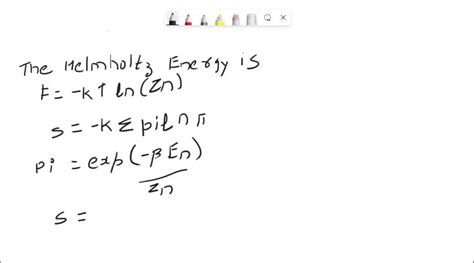 The Helmholtz Energy is
F = -kT ln(Zn)
s = -k Σ pi ln π
pi = exp(-β En)
Zn
s =